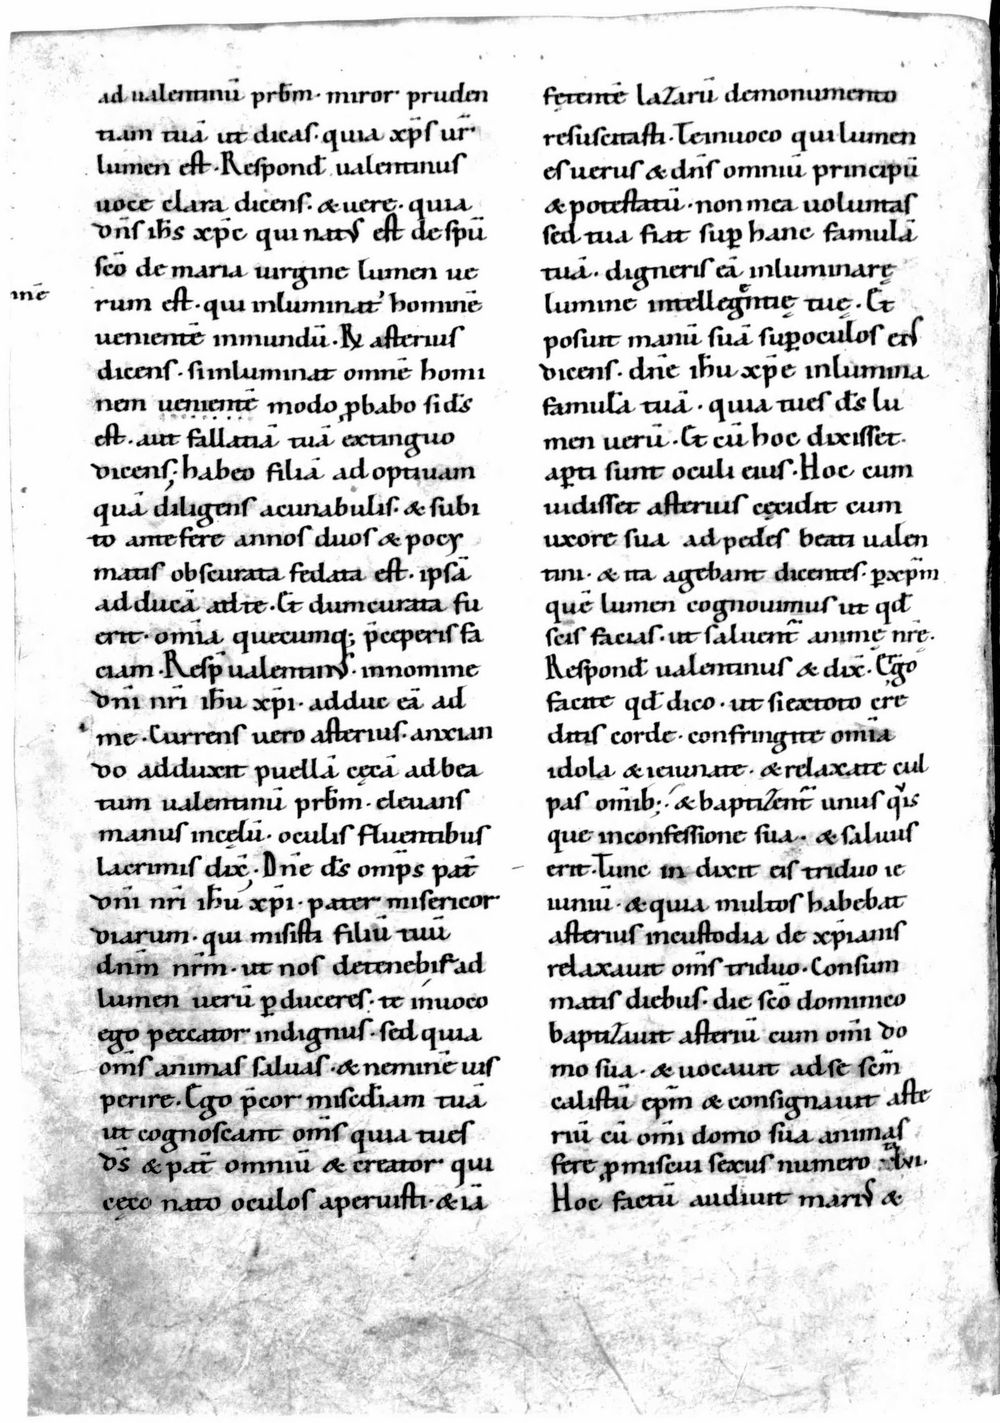 ad ualentinū prb̄m· miror pruden
tiam tuā ut dicas· quia xp̄s ur̄
lumen est· Respond̄ ualentinus
uoce clara dicens· & uere· quia
dn̄s ih̄s xp̄c qui natus est de sp̄u
sc̄o de maria uirgine lumen ue
mē
rum est· qui inluminat hominē
uenientē inmundū· R̄ asterius
dicens· si inluminat omnē homi
nem uenientē modo ꝓbabo si d̄s
est· aut fallatiā tuā extinguo
dicens· habeo filiā adoptiuam
quā diligens acunabulis· & subi
to ante fere annos duos & pocy
matis obscurata fedata est· ipsā
adducā ad te· Et dum curata fu
erit· om̄ia quecumq; p̄ceperis fa
ciam· Resp̄ ualentinus· innomine
dn̄i nr̄i ih̄u xp̄i· adduc eā ad
me· Currens uero asterius· anxian
do adduxit puellā cęcā ad bea
tum ualentinū prb̄m· eleuans
manus incęlū· oculis fluentibus
lacrimis dix̄· Dn̄e d̄s omp̄s pat̄
dn̄i nr̄i ih̄u xp̄i· pater misericor
diarum· qui misisti filiū tuū
dn̄m nr̄m· ut nos de tenebris ad
lumen uerū ꝑduceres· te inuoco
ego peccator indignus· sed quia
om̄s animas saluas· & neminē uis
perire· Ego p̄cor mised̄iam tuā
ut cognoscant om̄s quia tu es
d̄s & pat̄ omniū & creator qui
cęco nato oculos aperuisti· & iā
fętentē lazarū de monumento
resuscitasti· Te inuoco qui lumen
es uerus & dn̄s omniū principū
& potestatū· non mea uoluntas
sed tua fiat suꝑ hanc famulā
tuā· digneris eā inluminarę
lumine intellegentię tuę· Et
posuit manū suā suꝑ oculos eius
dicens· dn̄e ih̄u xp̄e inlumina
famulā tuā· quia tu es d̄s lu
men uerū· Et cū hoc dixisset·
aꝑti sunt oculi eius· Hoc cum
uidisset asterius cęcidit cum
uxore sua ad pedes beati ualen
tini· & ita agebant dicentes· ꝑ xp̄m
quē lumen cognouimus ut qd̄
scis facias· ut saluent̄ animę nr̄ę·
Respond̄ ualentinus & dix̄· Ergo
facite qd̄ dico· ut si ex toto cre
ditis corde· confringite om̄ia
idola & ieiunate· & relaxate cul
pas omīb;· & baptizent̄ unus qͥs
que in confessione sua· & saluus
erit· Tunc in dixit eis triduo ie
iuniū· & quia multos habebat
asterius in custodia de xp̄ianis
relaxauit om̄s triduo· Consum
matis diebus· die sc̄o dominico
baptizauit asteriū cum om̄i do
mo sua· & uocauit ad se sc̄m
calistū ep̄m & consignauit aste
riū cū om̄i domo sua animas
fere ꝓmiscui sexus numero xlvi·
Hoc factū audiuit marius &